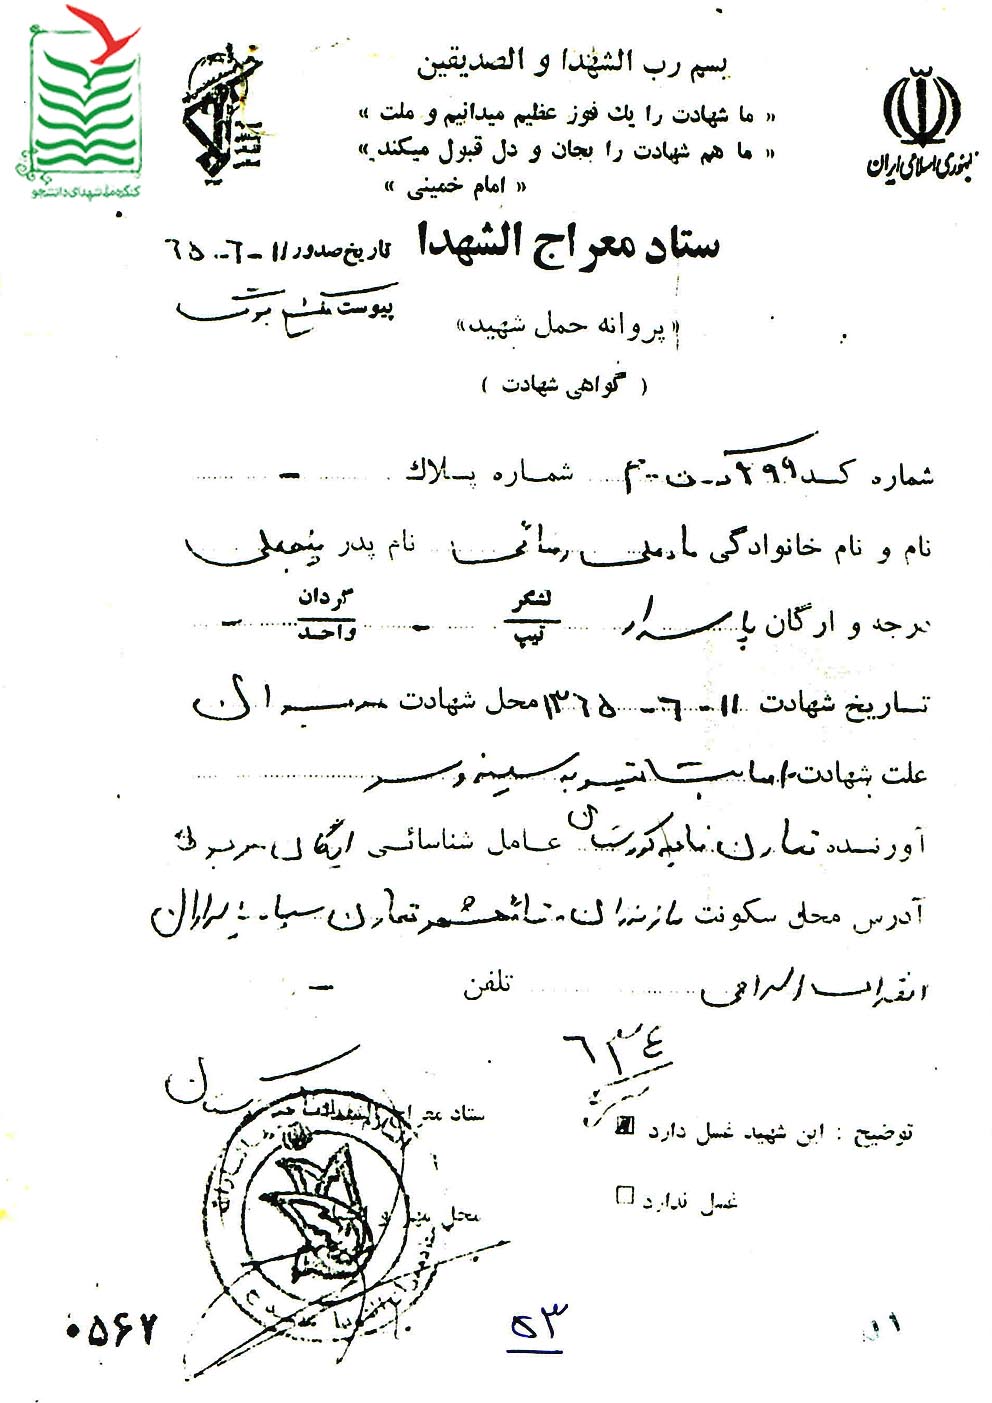 بسم رب الشهدا و الصدیقین
« ما شهادت را یك فوز عظیم میدانیم و ملت »
« ما هم شهادت را بجان و دل قبول میكند. »
« امام خمینی »
جمهوری اسلامی ایران
کنگره ملی شهدای دانشجو
ستاد معراج الشهدا
تاریخ صدور ۱۱-۶-۶۵
پیوست
«پروانه حمل شهید»
( گواهی شهادت )
شماره کد ۲۹۹ شماره پلاك -
نام و نام خانوادگی نام پدر پنجعلی
درجه و ارگان پاسدار لشگر تیپ - گردان واحد -
تاریخ شهادت ۱۱-۶-۱۳۶۵ محل شهادت
علت شهادت اصابت تیر به سینه و سر
آورنده تعاون عامل شناسائی
آدرس محل سکونت مازندران تعاون سپاه پاسداران
انقلاب اسلامی تلفن -
۶۳۴
توضیح : این شهید غسل دارد
غسل ندارد
ستاد معراج الشهداء
محل مهر و امضاء
۰۵۶۷
۵۳